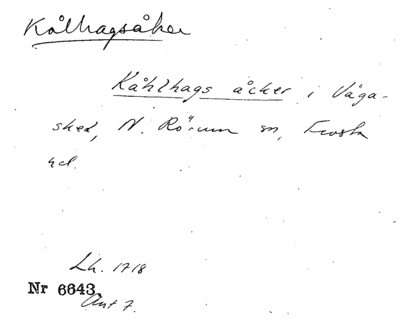 Kålhagsåker
Kåhlhags åcker i Våga-
sked, N. Rörum sn, Frosta
hd.
Lh. 1718
Nr 6643.
Ant 7.